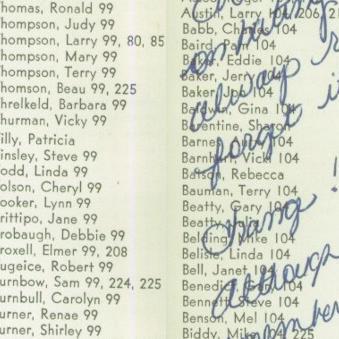 homas, Ronald 99
hompson, Judy 99
hompson, Larry 99, 80, 85
hompson, Mary 99
hompson, Terry 99
homson, Beau 99, 225
hrelkeld, Barbara 99
hurman, Vicky 99
illy, Patricia
insley, Steve 99
odd, Linda 99
olson, Cheryl 99
ooker, Lynn 99
rittipo, Jane 99
robaugh, Debbie 99
roxell, Elmer 99, 208
ugeice, Robert 99
urnbow, Sam 99, 224, 225
urnbull, Carolyn 99
urner, Renae 99
urner, Shirley 99
Austin, Larry 104, 206, 21
Babb, Charles 104
Baird, Pam 104
Baker, Eddie 104
Baker, Jerry 104
Baker, Job 104
Baldwin, Gina 104
Barentine, Sharon
Barnes 104
Barnhart, Vicki 104
Batson, Rebecca
Bauman, Terry 104
Beatty, Gary 104
Beatty, Julia
Belding, Mike 104
Belisle, Linda 104
Bell, Janet 104
Benedict, Dan 104
Bennett, Steve 104
Benson, Mel 104
Biddy, Mike 104, 225
always
forget i
change!
although
member